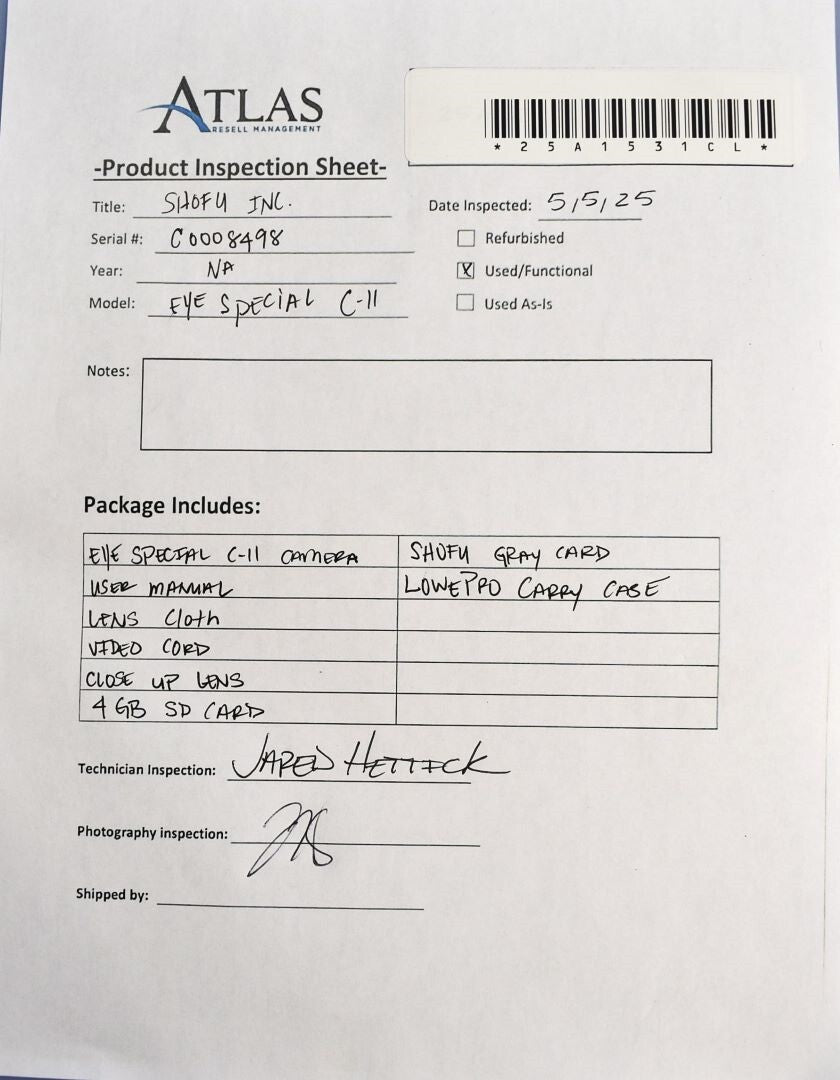 ATLAS
RESELL MANAGEMENT
*25A1531CL*
-Product Inspection Sheet-
Title: SHOFU INC.
Date Inspected: 5/5/25
Serial #: C0008498
Refurbished
Year: NA
X Used/Functional
Model: EYE SPECIAL C-II
Used As-Is
Notes:
Package Includes:
EYE SPECIAL C-II CAMERA SHOFU GRAY CARD
USER MANUAL LOWEPRO CARRY CASE
LENS Cloth
VIDEO CORD
CLOSE UP LENS
4 GB SD CARD
Technician Inspection: JARED HETTICK
Photography inspection:
Shipped by: